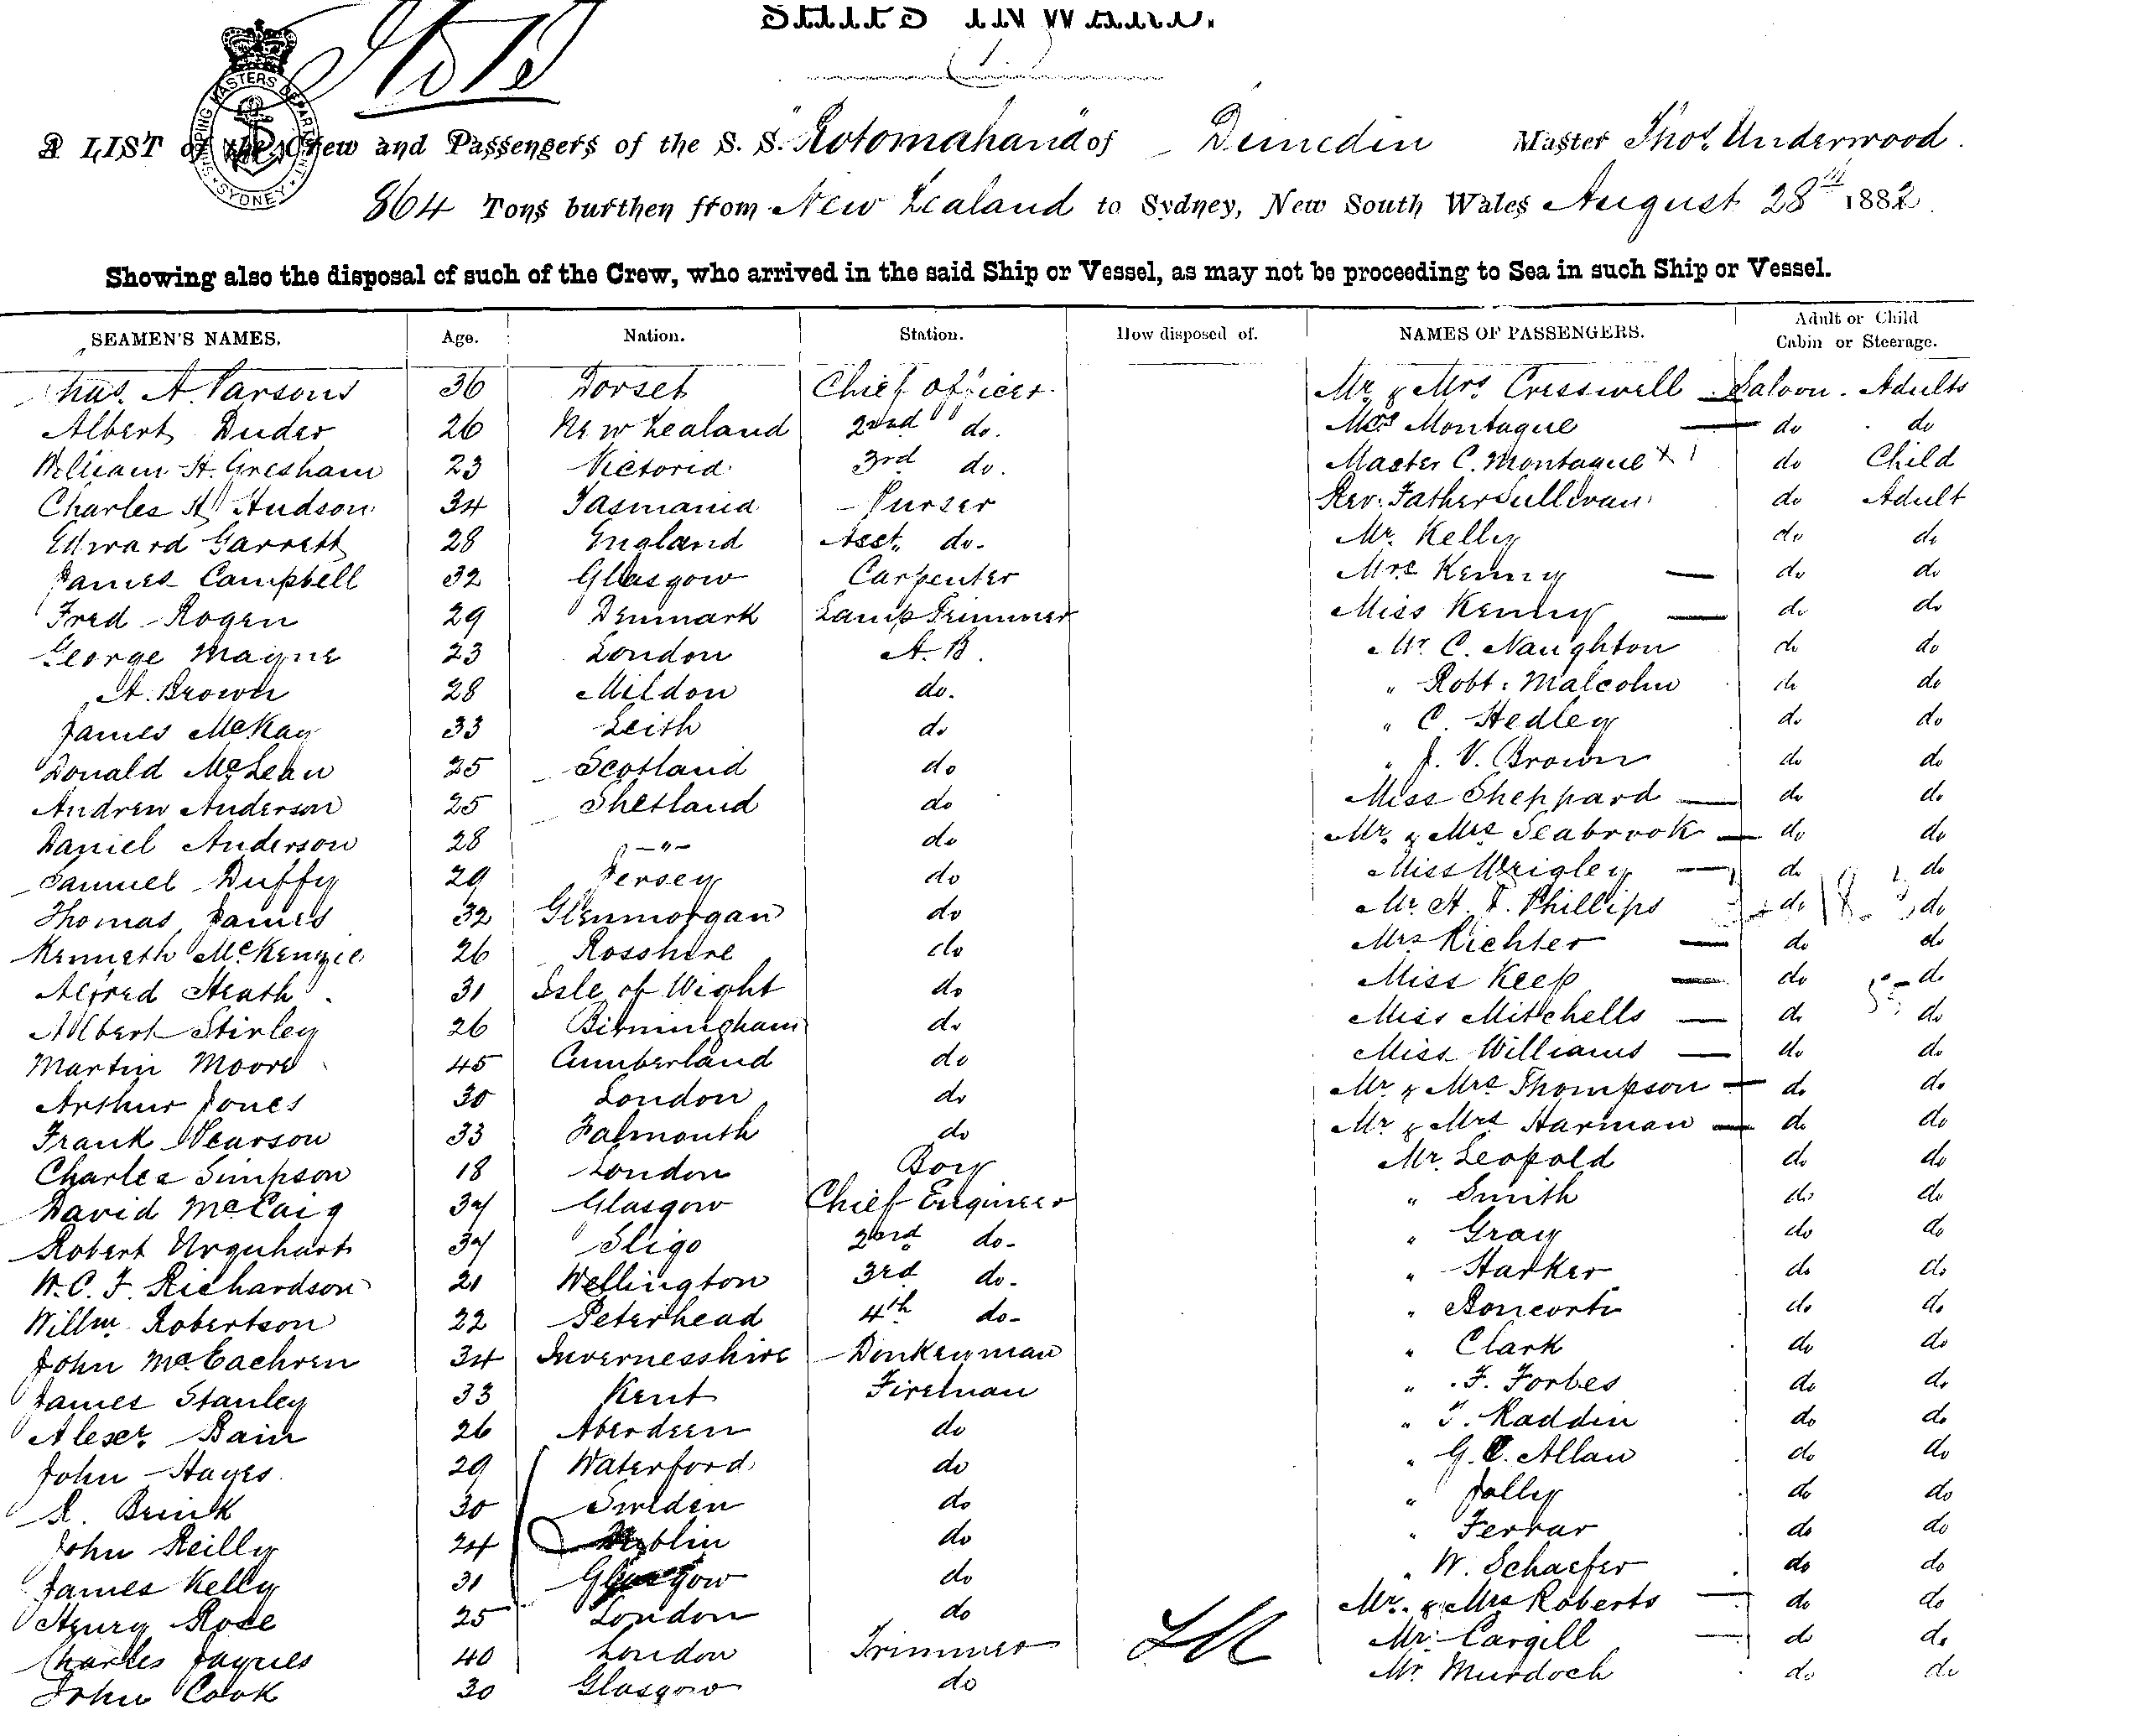 SHIPS INWARD.
SHIPPING MASTERS DEPARTMENT SYDNEY
A LIST of the Crew and Passengers of the S. S. "Rotomahana" of Dunedin Master Thos. Underwood.
864 Tons burthen from New Zealand to Sydney, New South Wales August 28th 1882.
Showing also the disposal of such of the Crew, who arrived in the said Ship or Vessel, as may not be proceeding to Sea in such Ship or Vessel.
SEAMEN'S NAMES. Age. Nation. Station. How disposed of. NAMES OF PASSENGERS. Adult or Child Cabin or Steerage.
Chas. A. Parsons 36 Dorset Chief officer Mr & Mrs Cresswell Saloon. Adults
Albert Duder 26 New Zealand 2nd do. Mrs Montague do do
William H. Gresham 23 Victoria 3rd do. Master C. Montague x 1 do Child
Charles H Hudson 34 Tasmania Purser Rev. Father Sullivan do Adult
Edward Garrett 28 England Asst. do. Mr. Kelly do do
James Campbell 32 Glasgow Carpenter Mrs Kenny do do
Fred Rogen 29 Denmark Lamp Trimmer Miss Kenny do do
George Mayne 23 London A. B. Mr C. Naughton do do
A. Brown 28 Mildon do. " Robt. Malcolm do do
James McKay 33 Leith do " C. Hedley do do
Donald McLean 25 Scotland do " J. V. Brown do do
Andrew Anderson 25 Shetland do Miss Sheppard do do
Daniel Anderson 28 -"- do Mr. & Mrs Seabrook do do
Samuel Duffy 29 Jersey do Miss Wrigley do do
Thomas James 32 Glenmorgan do Mr. H. Phillips do do
Kenneth McKenzie 26 Rosshire do Mrs Richter do do
Alfred Heath 31 Isle of Wight do Miss Keep do do
Albert Stirley 26 Birmingham do Miss Mitchells do do
Martin Moore 45 Cumberland do Miss Williams do do
Arthur Jones 30 London do Mr & Mrs Thompson do do
Frank Pearson 33 Falmouth do Mr & Mrs Harman do do
Charles Simpson 18 London Boy Mr. Leopold do do
David McCaig 34 Glasgow Chief Engineer " Smith do do
Robert Urquhart 34 Sligo 2nd do. " Gray do do
W. C. F. Richardson 21 Wellington 3rd do. " Harker do do
Willm. Robertson 22 Peterhead 4th do. " Boncorti do do
John McEachren 34 Invernesshire Donkeyman " Clark do do
James Stanley 33 Kent Fireman " F. Forbes do do
Alexr. Bain 26 Aberdeen do " T. Raddin do do
John Hayes 29 Waterford do " G. C. Allan do do
Brink 30 Sweden do " Jolly do do
John Reilly 24 Dublin do " Ferrar do do
James Kelly 31 Glasgow do " W. Schaefer do do
Henry Rose 25 London do Mr. & Mrs Roberts do do
Charles Jaques 40 London Trimmer Mr. Cargill do do
John Cook 30 Glasgow do Mr. Murdoch do do